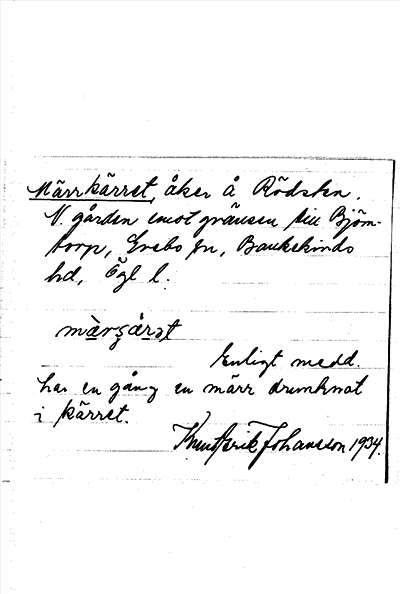 Märrkärret, åker å Rödsten.
N. gården emot gränsen till Björn-
torp, Grebo sn, Bankekinds
hd, Ögl l.
Enligt medd.
har en gång en märr drunknat
i kärret.
Knut Erik Johansson 1934.